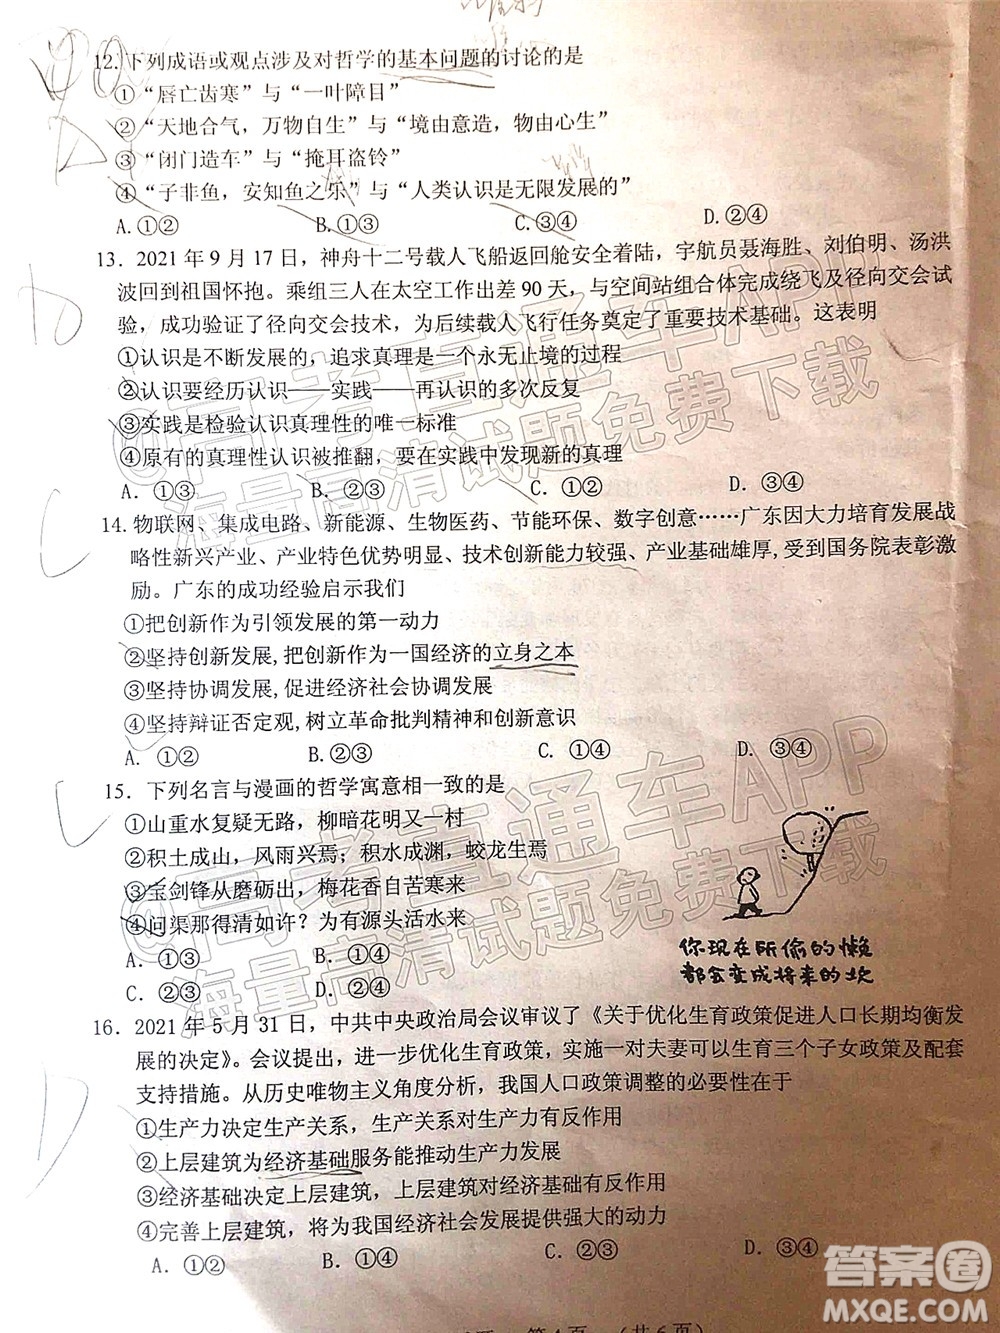 12. 下列成语或观点涉及对哲学的基本问题的讨论的是
①“唇亡齿寒”与“一叶障目”
②“天地合气，万物自生”与“境由意造，物由心生”
③“闭门造车”与“掩耳盗铃”
④“子非鱼，安知鱼之乐”与“人类认识是无限发展的”
A.①② B.①③ C.③④ D.②④
13. 2021 年 9 月 17 日，神舟十二号载人飞船返回舱安全着陆，宇航员聂海胜、刘伯明、汤洪
波回到祖国怀抱。乘组三人在太空工作出差 90 天，与空间站组合体完成绕飞及径向交会试
验，成功验证了径向交会技术，为后续载人飞行任务奠定了重要技术基础。这表明
①认识是不断发展的，追求真理是一个永无止境的过程
②认识要经历认识——实践——再认识的多次反复
③实践是检验认识真理性的唯一标准
④原有的真理性认识被推翻，要在实践中发现新的真理
A．①③ B．②③ C．①② D．③④
14. 物联网、集成电路、新能源、生物医药、节能环保、数字创意……广东因大力培育发展战
略性新兴产业、产业特色优势明显、技术创新能力较强、产业基础雄厚,受到国务院表彰激
励。广东的成功经验启示我们
①把创新作为引领发展的第一动力
②坚持创新发展,把创新作为一国经济的立身之本
③坚持协调发展,促进经济社会协调发展
④坚持辩证否定观,树立革命批判精神和创新意识
A. ①② B. ①③ C. ①④ D. ③④
15．下列名言与漫画的哲学寓意相一致的是
①山重水复疑无路，柳暗花明又一村
②积土成山，风雨兴焉；积水成渊，蛟龙生焉
③宝剑锋从磨砺出，梅花香自苦寒来
④问渠那得清如许？为有源头活水来
A．①③ B．①④
C．②③ D．②④
你现在所偷的懒
都会变成将来的坎
16．2021 年 5 月 31 日，中共中央政治局会议审议了《关于优化生育政策促进人口长期均衡发
展的决定》。会议提出，进一步优化生育政策，实施一对夫妻可以生育三个子女政策及配套
支持措施。从历史唯物主义角度分析，我国人口政策调整的必要性在于
①生产力决定生产关系，生产关系对生产力有反作用
②上层建筑为经济基础服务能推动生产力发展
③经济基础决定上层建筑，上层建筑对经济基础有反作用
④完善上层建筑，将为我国经济社会提供强大的动力
A．①② B．①④ C．②③ D．③④
第 4 页 （共 6 页）
@高考直通车APP
海量高清试题免费下载
@高考直通车APP
海量高清试题免费下载
答案圈
MXQE.COM